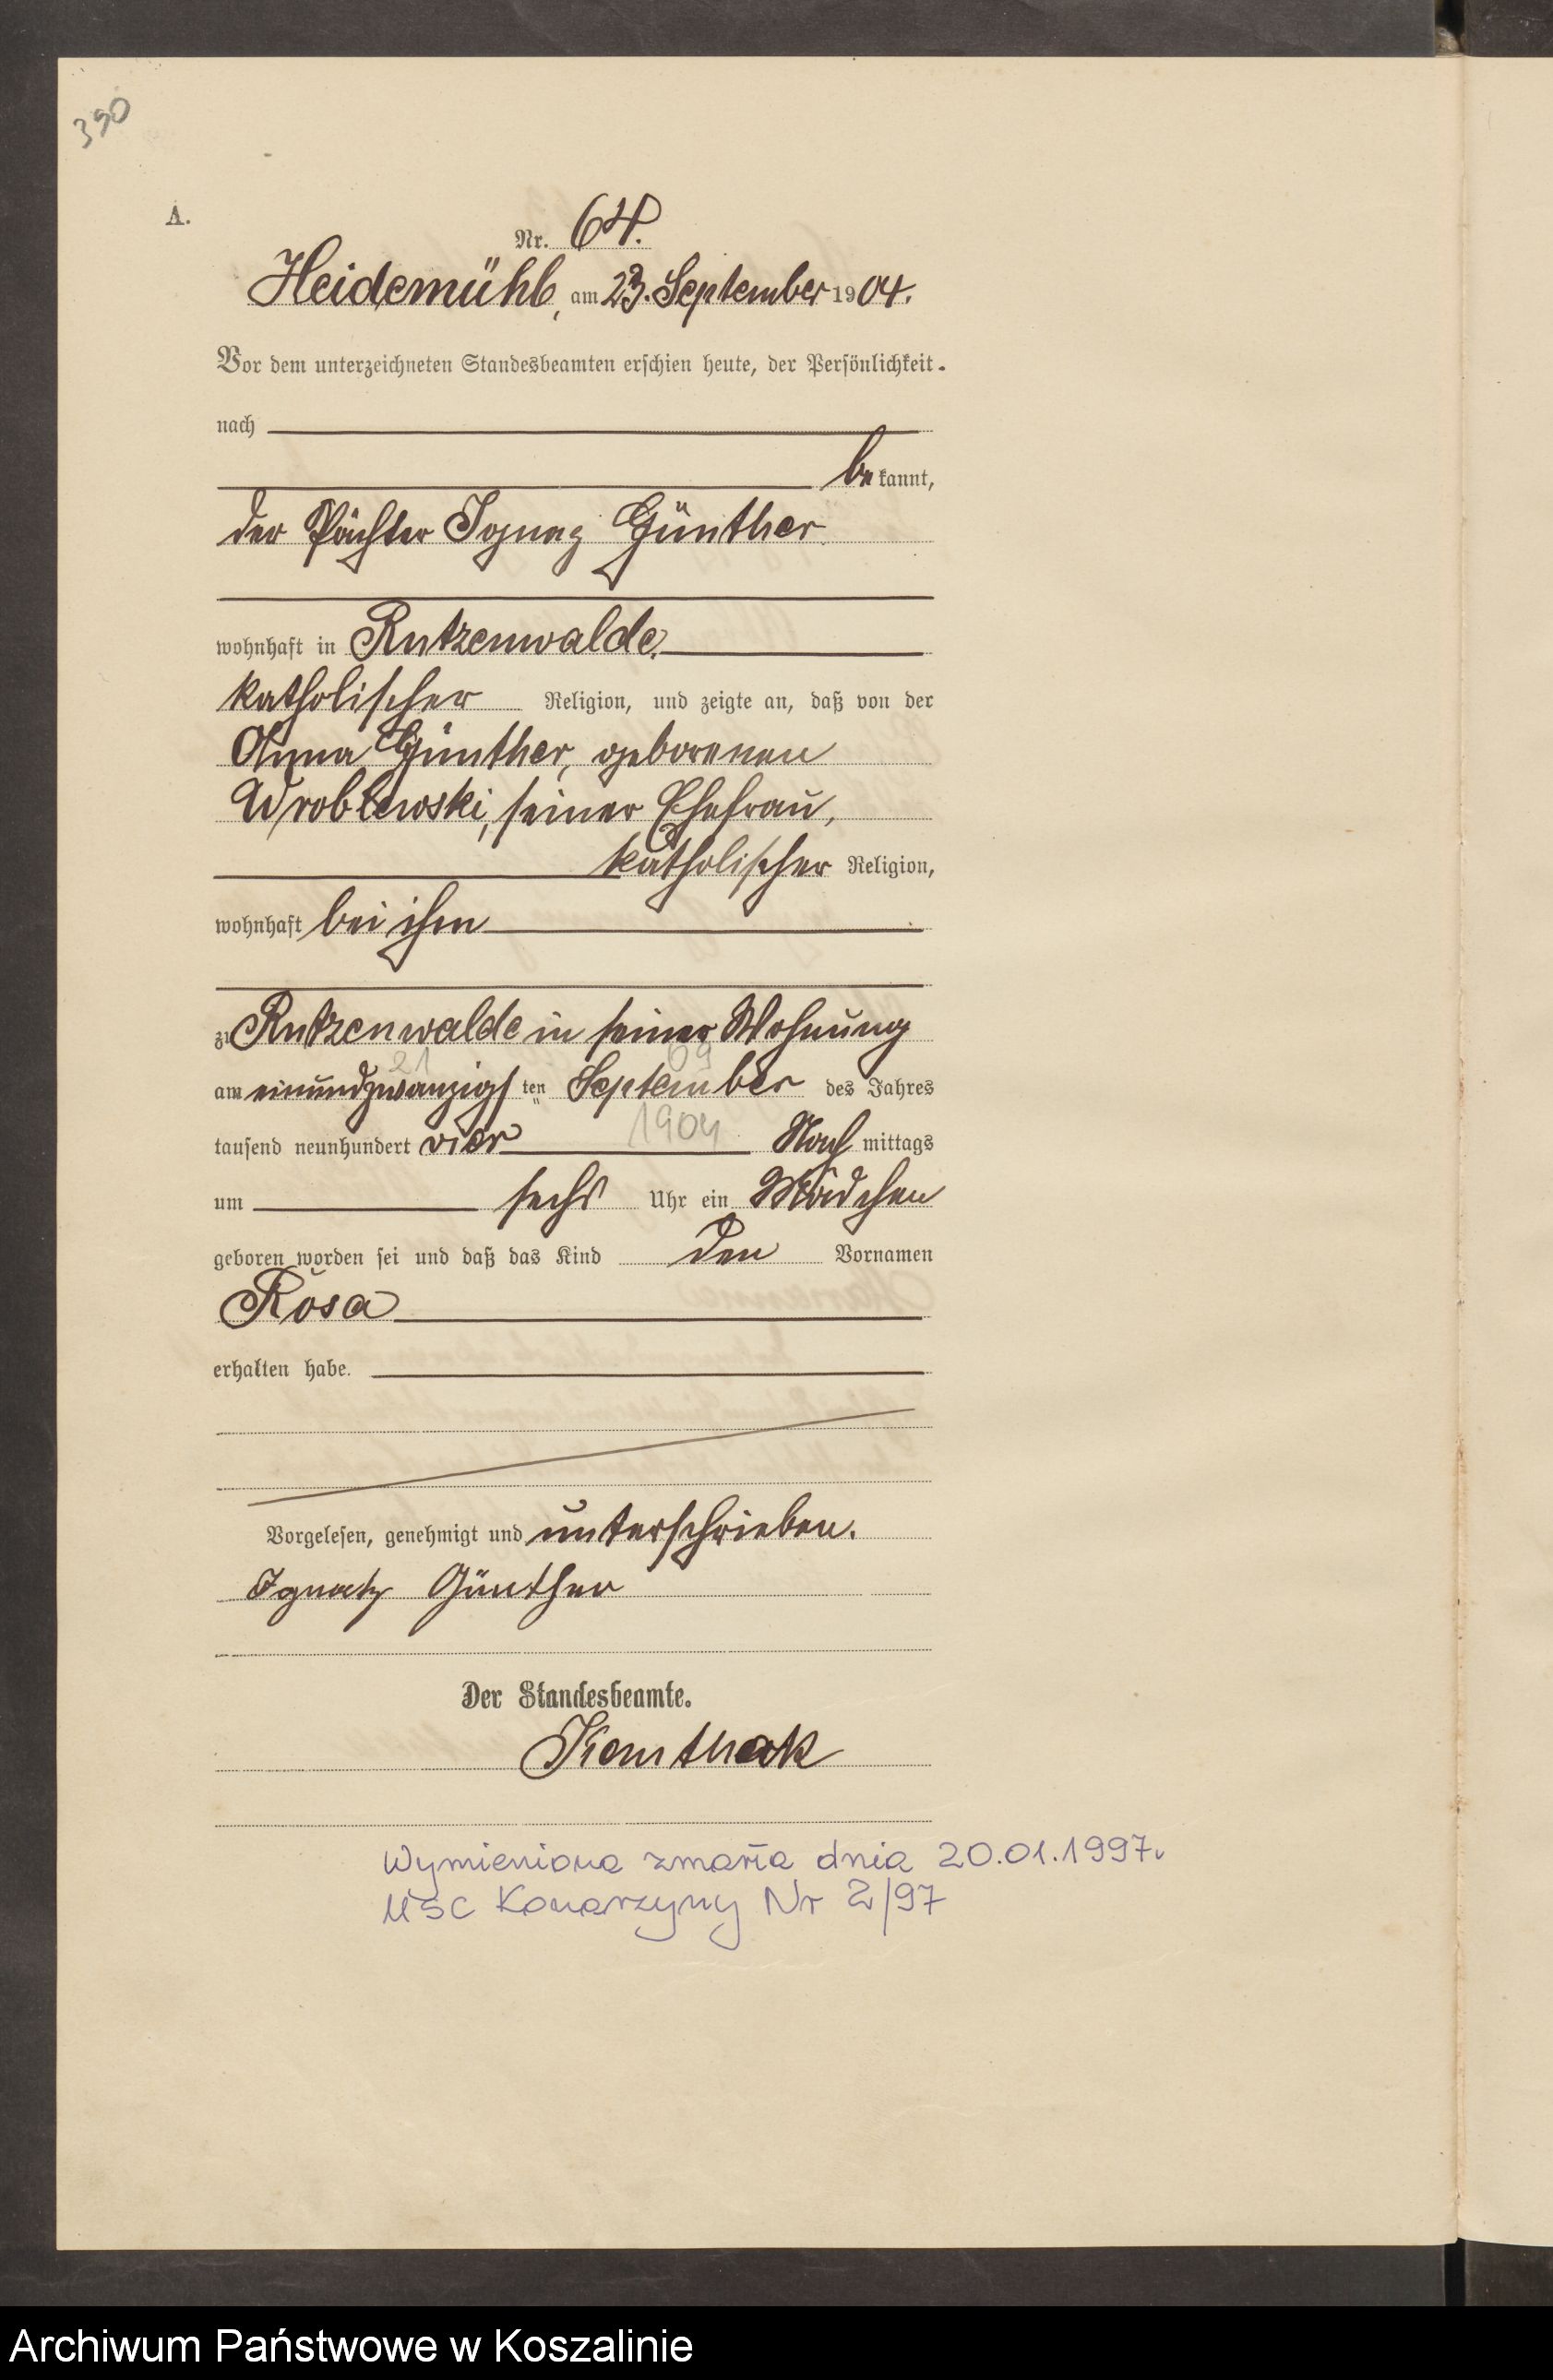 390
A.
Nr. 64.
Heidemühl, am 23. September 1904.
Vor dem unterzeichneten Standesbeamten erschien heute, der Persönlichkeit
nach
bekannt,
der Pächter Ignaz Günther
wohnhaft in Rutzenwalde,
katholischer Religion, und zeigte an, daß von der
Anna Günther, geborenen
Wroblewski, seiner Ehefrau,
katholischer Religion,
wohnhaft bei ihm
zu Rutzenwalde in seiner Wohnung
21 09
am einundzwanzigsten September des Jahres
tausend neunhundert vier 1904 Nachmittags
um sechs Uhr ein Mädchen
geboren worden sei und daß das Kind den Vornamen
Rosa
erhalten habe.
Vorgelesen, genehmigt und unterschrieben.
Ignatz Günther
Der Standesbeamte.
Wymieniona zmarła dnia 20.01.1997r
USC Konarzyny Nr 2/97
Archiwum Państwowe w Koszalinie